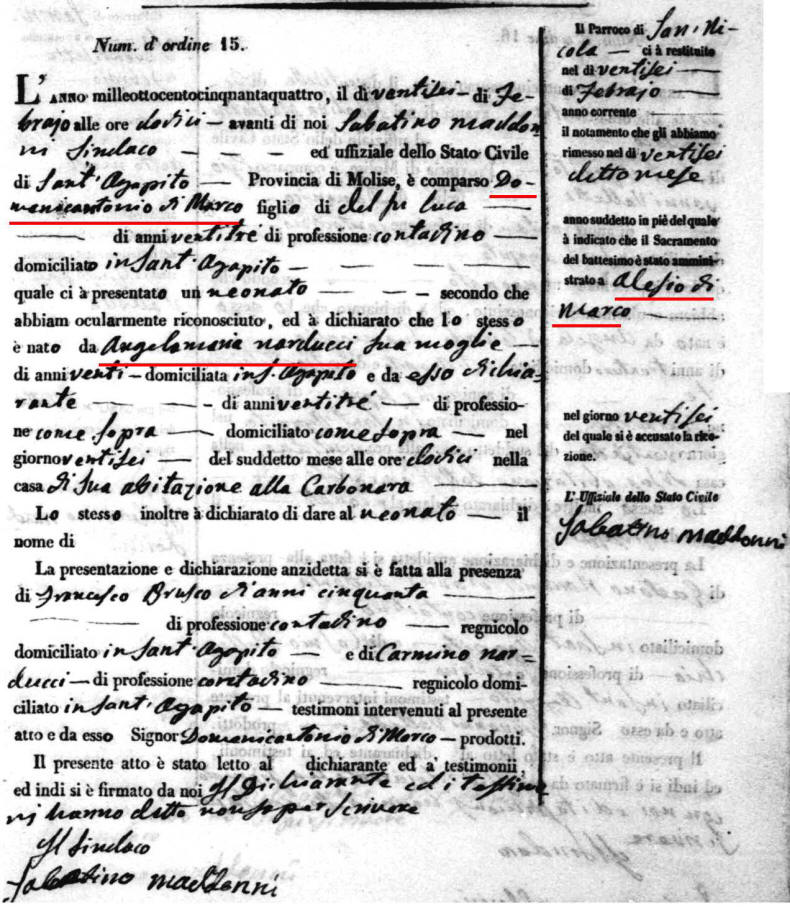 Num. d'ordine 15.
L'ANNO milleottocentocinquantaquattro, il dì ventisei — di Fe-
brajo alle ore dodici — avanti di noi Sabatino Maddon
ni Sindaco — — — ed uffiziale dello Stato Civile
di Sant'Agapito — Provincia di Molise, è comparso Do-
menicantonio di Marco figlio di del fu Luca —
— di anni ventitré di professione contadino
domiciliato in Sant Agapito — — — —
quale ci à presentato un neonato — — — secondo che
abbiam ocularmente riconosciuto, ed à dichiarato che lo stesso
è nato da Angelamaria Narducci sua moglie —
di anni venti — domiciliata in S. Agapito e da esso dichia=
rante — — di anni ventitré — di professio-
ne come sopra — domiciliato come sopra — nel
giorno ventisei — del suddetto mese alle ore dodici nella
casa di sua abitazione alla Carbonara —
Lo stesso inoltre à dichiarato di dare al neonato — il
nome di
La presentazione e dichiarazione anzidetta si è fatta alla presenza
di Francesco Brusco di anni cinquanta —
— di professione contadino — regnicolo
domiciliato in Sant Agapito — e di Carmino Nar=
ducci — di professione contadino — regnicolo domi-
ciliato in Sant'Agapito — testimoni intervenuti al presente
atto e da esso Signor Domenicantonio di Marco — prodotti.
Il presente atto è stato letto al dichiarante ed a' testimonii,
ed indi si è firmato da noi Il Dichiarante ed i testimo
ni hanno detto non saper scrivere
Il Sindaco
Sabatino Maddonni
Il Parroco di San Ni-
cola — ci à restituito
nel dì ventisei —
di Febrajo —
anno corrente —
il notamento che gli abbiamo
rimesso nel dì ventisei
detto mese
anno suddetto in piè del quale
à indicato che il Sacramento
del battesimo è stato ammini-
strato a Alesio di
Marco —
nel giorno ventisei
del quale si è accusato la rice-
zione.
L' Uffiziale dello Stato Civile
Sabatino Maddonni